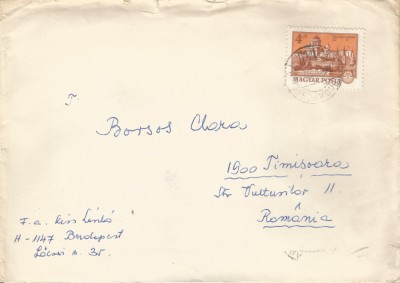 4 Ft
MAGYAR POSTA
T.
Borsos Clara
1900 Timişoara
Str Vulturilor 11
România
F. a. Kiss László
H-1147 Budapest
Lőcsei u. 35.